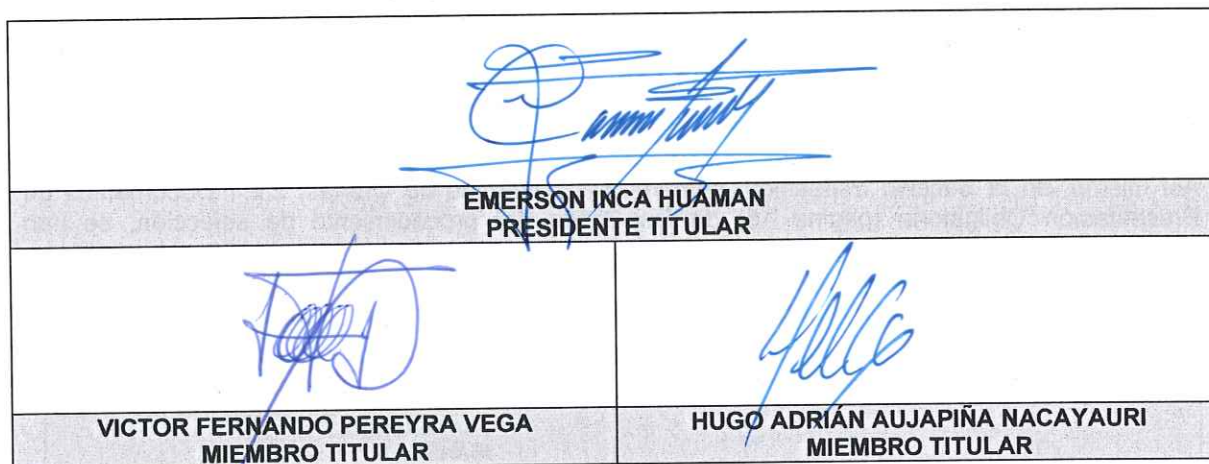 EMERSON INCA HUAMAN
PRESIDENTE TITULAR
VICTOR FERNANDO PEREYRA VEGA
MIEMBRO TITULAR
HUGO ADRIÁN AUJAPIÑA NACAYAURI
MIEMBRO TITULAR